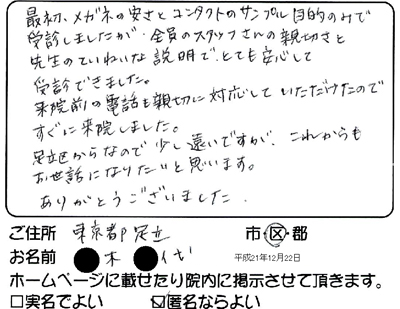 最初、メガネの安さとコンタクトのサンプル目的のみで
受診しましたが、全員のスタッフさんの親切さと
先生のていねいな説明で、とても安心して
受診できました。
来院前の電話も親切に対応していただけたので
すぐに来院しました。
足立区からなので少し遠いですが、これからも
お世話になりたいと思います。
ありがとうございました.
ご住所 東京都 足立 市・区・郡
お名前 ●木 ● 平成21年12月22日
ホームページに載せたり院内に掲示させて頂きます。
□実名でよい ☑匿名ならよい